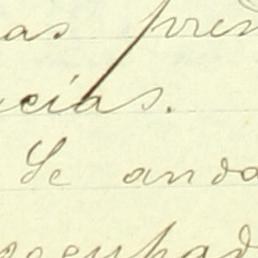 as pren
ncias.
Se anda
ocupad